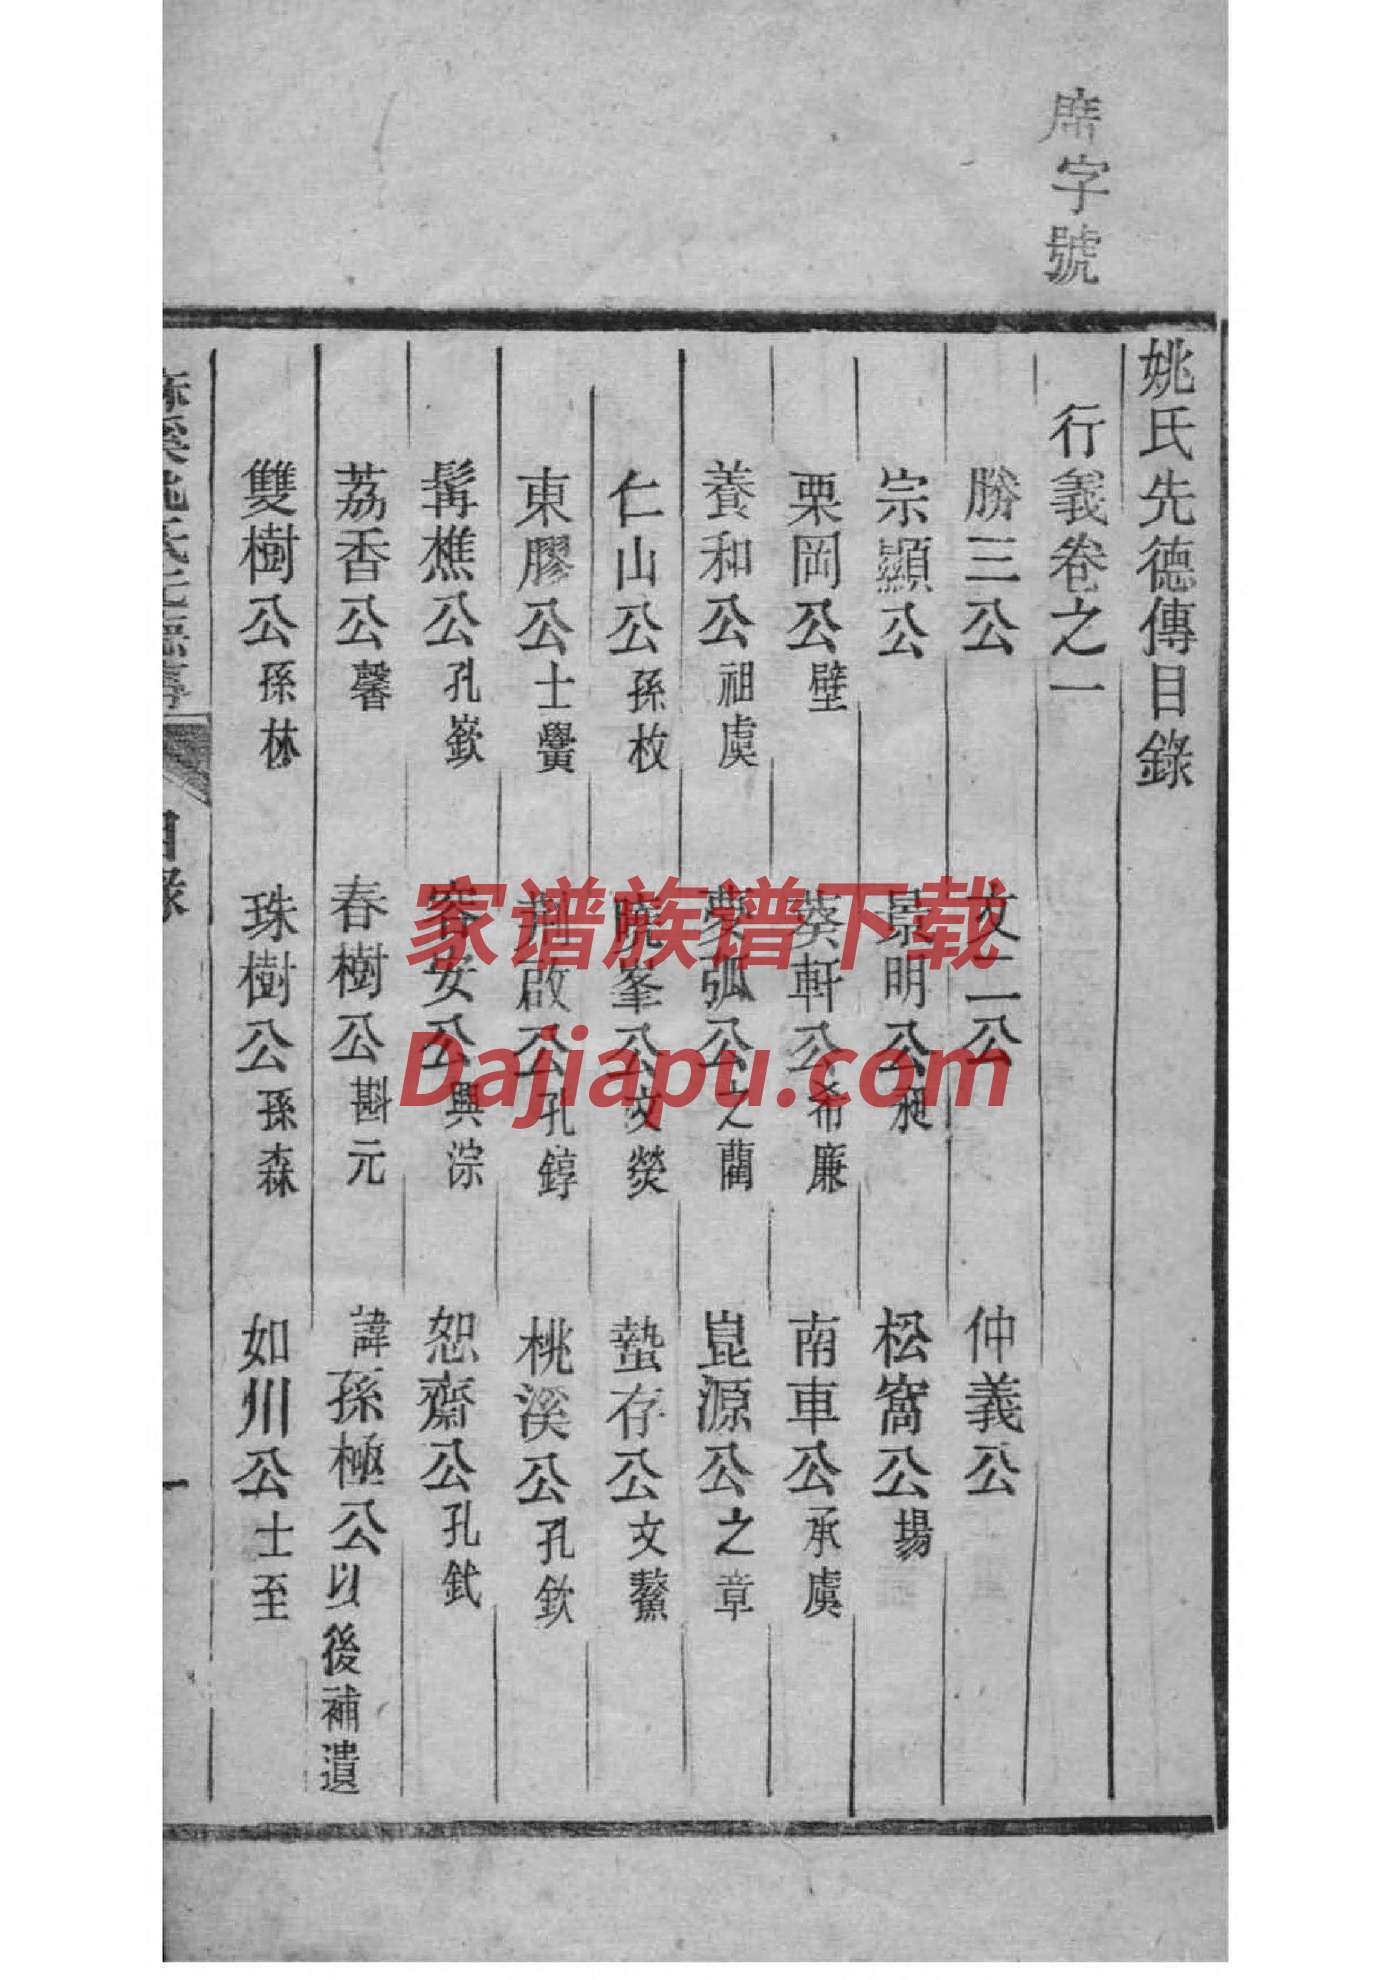 席字號
姚氏先德傳目錄
行義卷之一
勝三公 文二公 仲義公
宗顯公 景明公昶 松窩公場
栗岡公壁 葵軒公希廉 南車公承虞
養和公祖虞 蒙弧公之藺 崑源公之章
仁山公孫枚 曉峯公文熒 蟄存公文鰲
東膠公士黌 荊啟公孔錞 桃溪公孔欽
髯樵公孔嶔 容安公興淙 恕齋公孔鉽
荔香公馨 春樹公斟元 諱孫極公以後補遺
雙樹公孫林 珠樹公孫森 如州公士至
麻溪姚氏先德傳 目錄 一
家谱族谱下载
Dajiapu.com